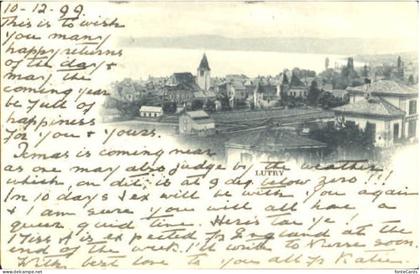 10-12-99
This is to wish
you many
happy returns
of the day &
may the
coming year
be full of
happiness
for you &
yours.
Xmas is coming near
as one may also judge by the weather
which, on dit, is at 9 deg. below zero!!!
LUTRY
In 10 days I will be with you again
& I am sure you will all have a
good time. Here's to ye!
Miss is expected fr England at the
end of the week. I'll write to soon.
With best love to you all yrs Katie.